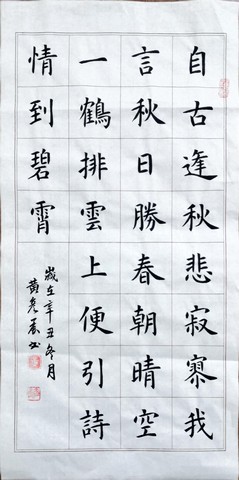 自古逢秋悲寂寥我
言秋日勝春朝晴空
一鶴排雲上便引詩
情到碧霄
歲在辛丑冬月
黄书